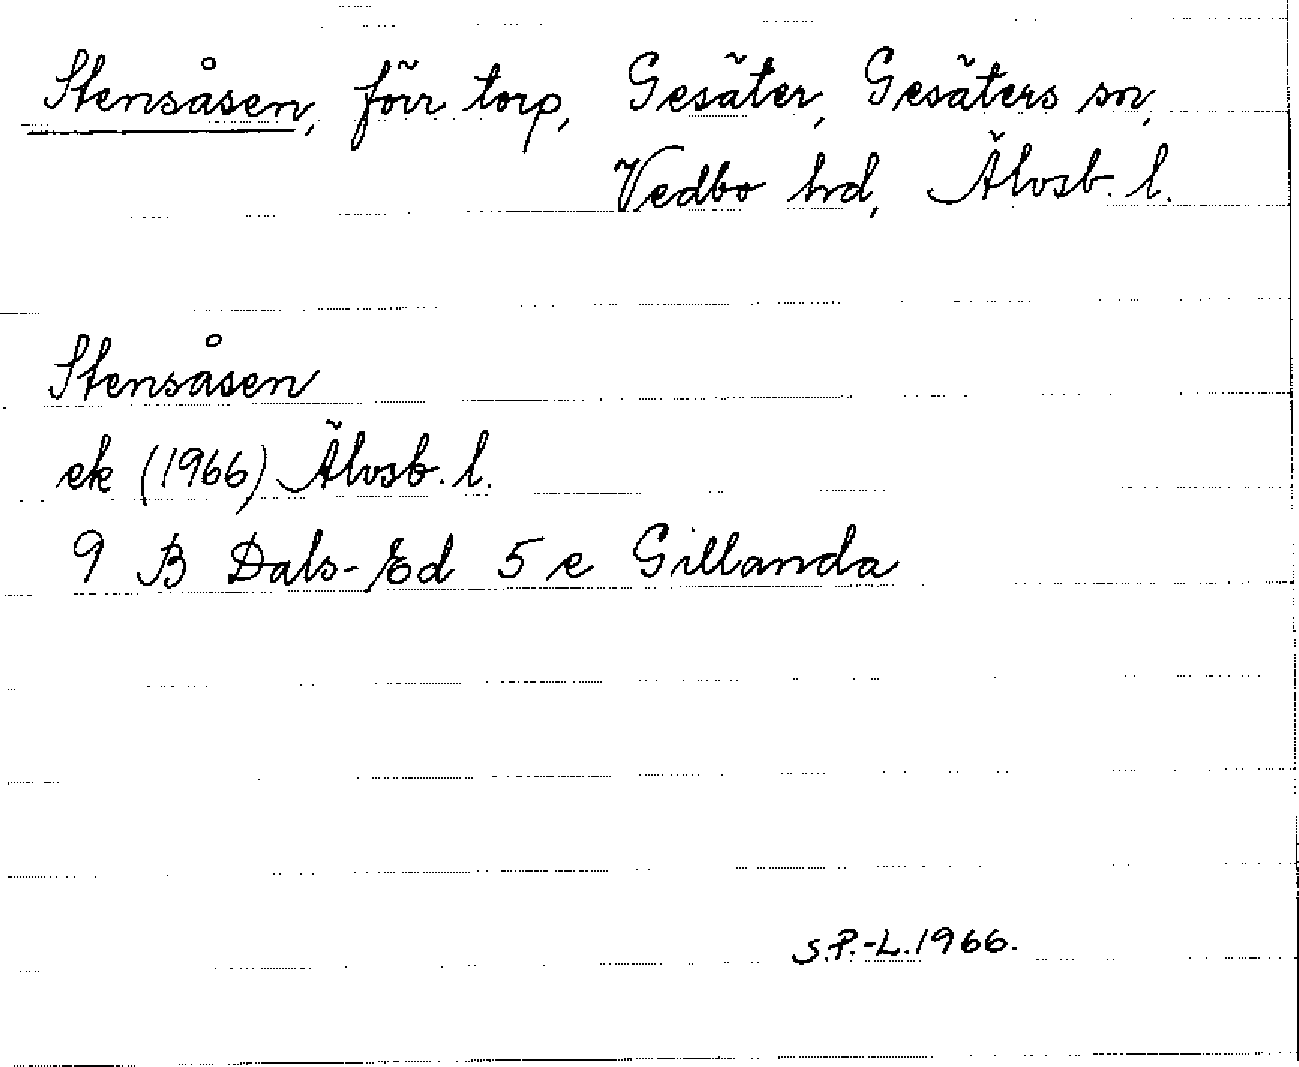 Stensåsen, förr torp, Gesäter, Gesäters sn,
Vedbo hd, Älvsb. l.
Stensåsen
ek (1966) Älvsb. l.
9 B Dals-Ed 5 e Gillanda
S.P.-L. 1966.